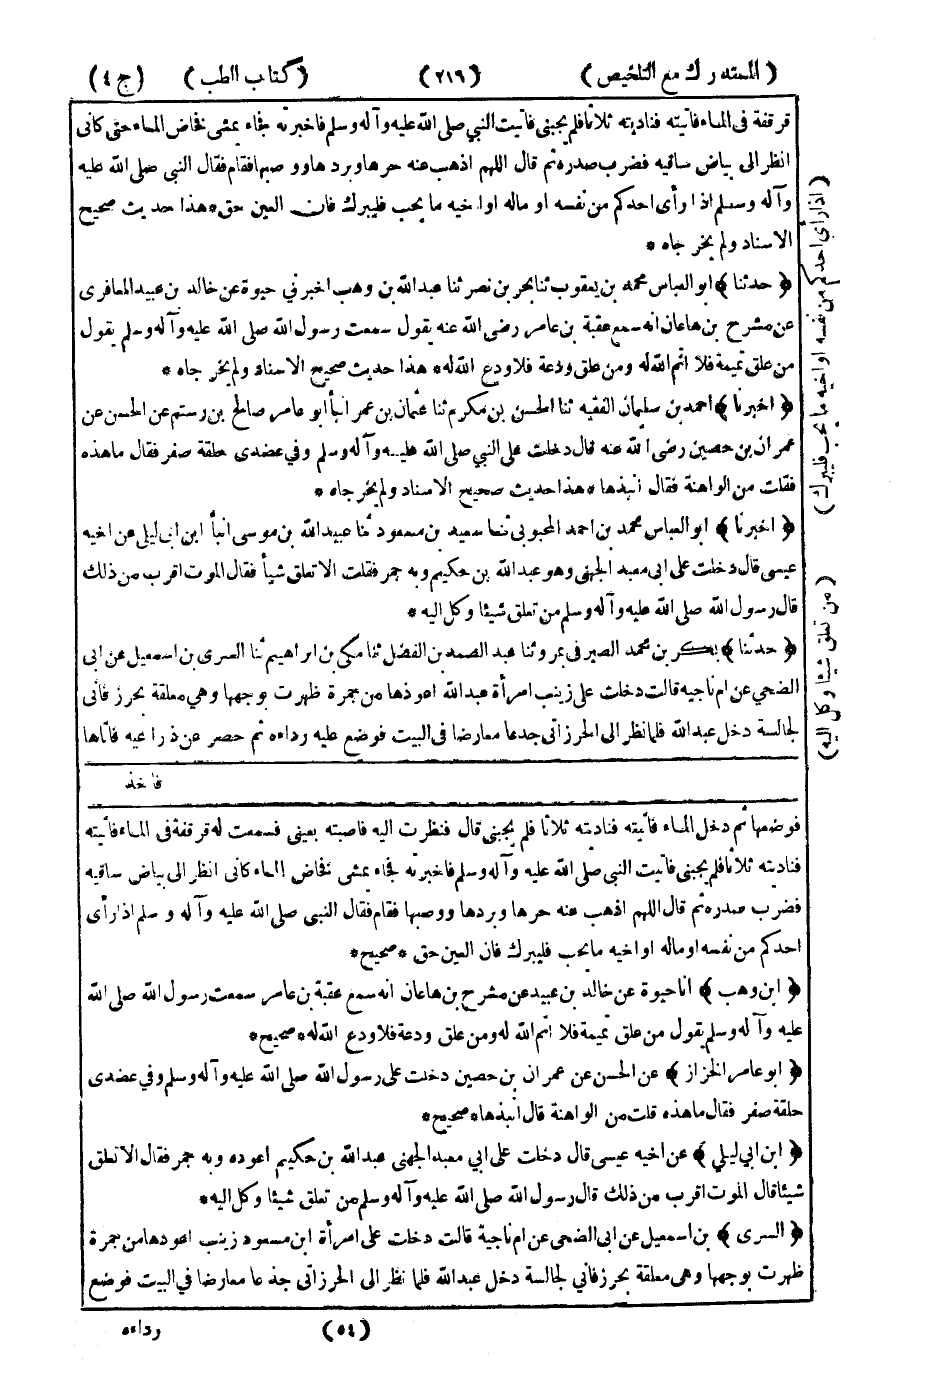 (المستدرك مع التلخيص) (٢١٦) (كتاب الطب) (ج ٤)
قرقفة فى الماء فاتيته فناديته ثلاثا فلم يجبنى فاتيت النبي صلى الله عليه وآله وسلم فاخبرته فجاء يمشى فخاض الماء حتى كانى
انظر الى بياض ساقيه فضرب صدره ثم قال اللهم اذهب عنه حرها وبردها ووصبها فقام فقال النبى صلى الله عليه
وآله وسلم اذا رأى احدكم من نفسه او ماله او اخيه ما يحب فليبرك فان العين حق * هذا حديث صحيح
الاسناد ولم يخرجاه *
﴿ حدثنا ﴾ ابو العباس محمد بن يعقوب ثنا بحر بن نصر ثنا عبد الله بن وهب اخبرني حيوة عن خالد بن عبيد المعافرى
عن مشرح بن هاعان انه سمع عقبة بن عامر رضى الله عنه يقول سمعت رسول الله صلى الله عليه وآله وسلم يقول
من علق تميمة فلا اتم الله له ومن علق ودعة فلا ودع الله له * هذا حديث صحيح الاسناد ولم يخرجاه *
﴿ اخبرنا ﴾ احمد بن سليمان الفقيه ثنا الحسن بن مكرم ثنا عثمان بن عمر انبأ ابو عامر صالح بن رستم عن الحسن عن
عمران بن حصين رضى الله عنه قال دخلت على النبي صلى الله عليه وآله وسلم وفي عضدى حلقة صفر فقال ما هذه
فقلت من الواهنة فقال انبذها * هذا حديث صحيح الاسناد ولم يخرجاه *
﴿ اخبرنا ﴾ ابو العباس محمد بن احمد المحبوبى ثنا سعيد بن مسعود ثنا عبيد الله بن موسى انبأ ابن ابى ليلى عن اخيه
عيسى قال دخلت على ابى معبد الجهنى وهو عبد الله بن حكيم وبه جمر فقلت الا تعلق شيأ فقال الموت اقرب من ذلك
قال رسول الله صلى الله عليه وآله وسلم من تعلق شيئا وكل اليه *
﴿ حدثنا ﴾ بكر بن محمد الصيرفى بمرو ثنا عبد الصمد بن الفضل ثنا مكى بن ابراهيم ثنا السرى بن اسمعيل عن ابى
الضحى عن ام ناجيه قالت دخلت على زينب امرأة عبد الله اعوذها من جمرة ظهرت بوجهها وهي معلقة بحرز فانى
لجالسة دخل عبد الله فلما نظر الى الحرز اتى جدعا معارضا فى البيت فوضع عليه رداءه ثم حصر عن ذراعيه فاتاها
فاخذ
فوضعها ثم دخل الماء فاتيته فناديته ثلاثا فلم يجبنى قال فنظرت اليه فاصبته بعينى فسمعت له قرقفة فى الماء فاتيته
فناديته ثلاثا فلم يجبنى فاتيت النبي صلى الله عليه وآله وسلم فاخبرته فجاء يمشى فخاض الماء كانى انظر الى بياض ساقيه
فضرب صدره ثم قال اللهم اذهب عنه حرها وبردها ووصبها فقام فقال النبى صلى الله عليه وآله وسلم اذا رأى
احدكم من نفسه او ماله او اخيه ما يحب فليبرك فان العين حق * صحيح *
﴿ ابن وهب ﴾ انا حيوة عن خالد بن عبيد عن مشرح بن هاعان انه سمع عقبة بن عامر سمعت رسول الله صلى الله
عليه وآله وسلم يقول من علق تميمة فلا اتم الله له ومن علق ودعة فلا ودع الله له * صحيح *
﴿ ابو عامر الخزاز ﴾ عن الحسن عن عمران بن حصين دخلت على رسول الله صلى الله عليه وآله وسلم وفي عضدى
حلقة صفر فقال ما هذه قلت من الواهنة قال انبذها * صحيح *
﴿ ابن ابي ليلي ﴾ عن اخيه عيسى قال دخلت على ابي معبد الجهنى عبد الله بن حكيم اعوده وبه جمر فقال الا نعلق
شيئا قال الموت اقرب من ذلك قال رسول الله صلى الله عليه وآله وسلم من تعلق شيئا وكل اليه *
﴿ السرى ﴾ بن اسمعيل عن ابى الضحى عن ام ناجية قالت دخلت على امرأة ابن مسعود زينب اعودها من جمرة
ظهرت بوجهها وهى معلقة بحرز فاني لجالسة دخل عبد الله فلما نظر الى الحرز اتى جذعا معارضا في البيت فوضع
(٥٤) رداءه
(اذا رأى احدكم من نفسه او اخيه ما يحب فليبرك)
(من تعلق شيئا وكل اليه)